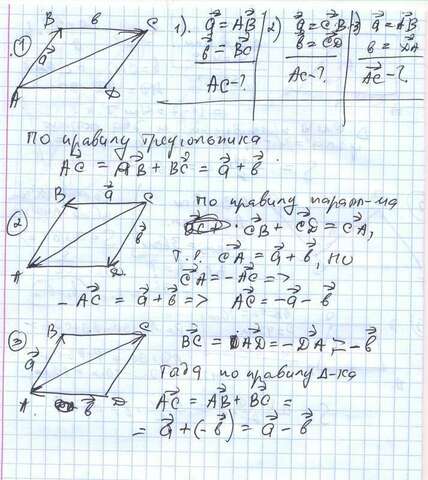 1
B b C
a
A D
1). a⃗ = AB⃗
b⃗ = BC⃗
AC - ?
2) a⃗ = CB⃗
b⃗ = CD⃗
AC - ?
3) a⃗ = AB⃗
b = DA⃗
AC⃗ - ?
По правилу треугольника
AC⃗ = AB⃗ + BC⃗ = a⃗ + b⃗
2
B a⃗ C
b⃗
A D
По правилу парал-ма
CB⃗ + CD⃗ = CA⃗,
т.е. CA⃗ = a⃗ + b⃗, но
CA⃗ = -AC⃗ =>
- AC⃗ = a⃗ + b⃗ => AC⃗ = -a⃗ - b⃗
3
B C
a⃗
A b⃗ D
BC⃗ = AD⃗ = -DA⃗ = -b⃗
Тада по правилу Δ-ка
AC⃗ = AB⃗ + BC⃗ =
= a⃗ + (-b⃗) = a⃗ - b⃗